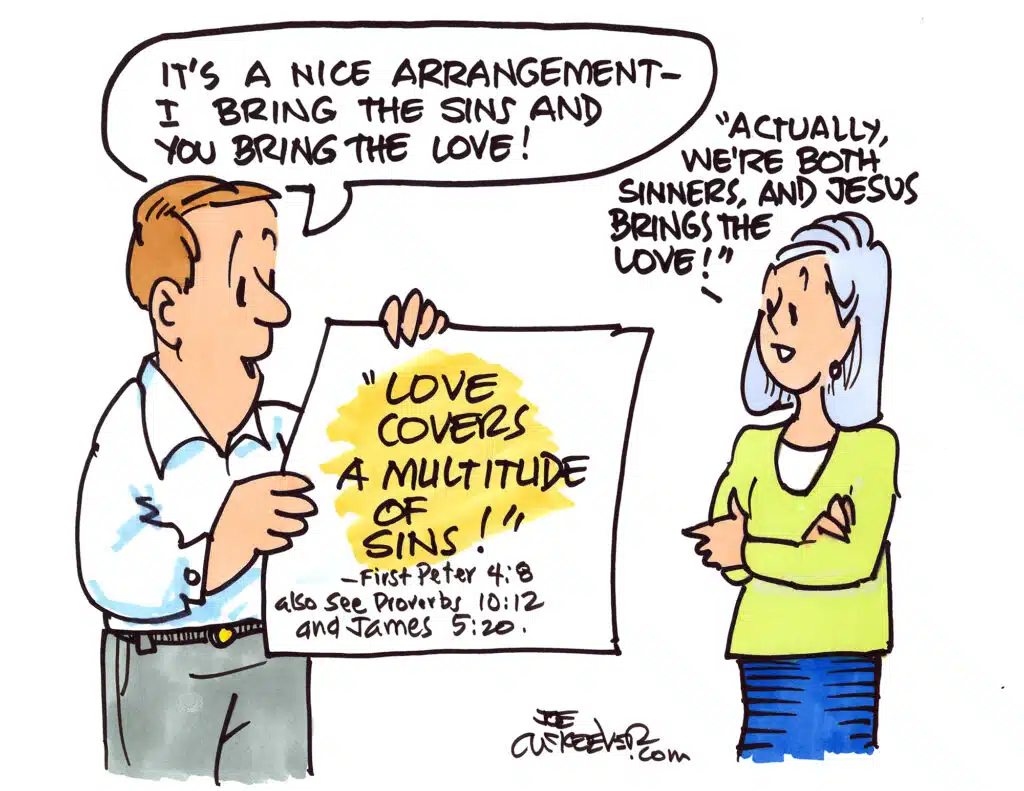 IT'S A NICE ARRANGEMENT–
I BRING THE SINS AND
YOU BRING THE LOVE!
"ACTUALLY,
WE'RE BOTH
SINNERS, AND JESUS
BRINGS THE
LOVE!"
"LOVE
COVERS
A MULTITUDE
OF
SINS!"
–First Peter 4:8
also see Proverbs 10:12
and James 5:20.
JOE
McKEEVER
.com